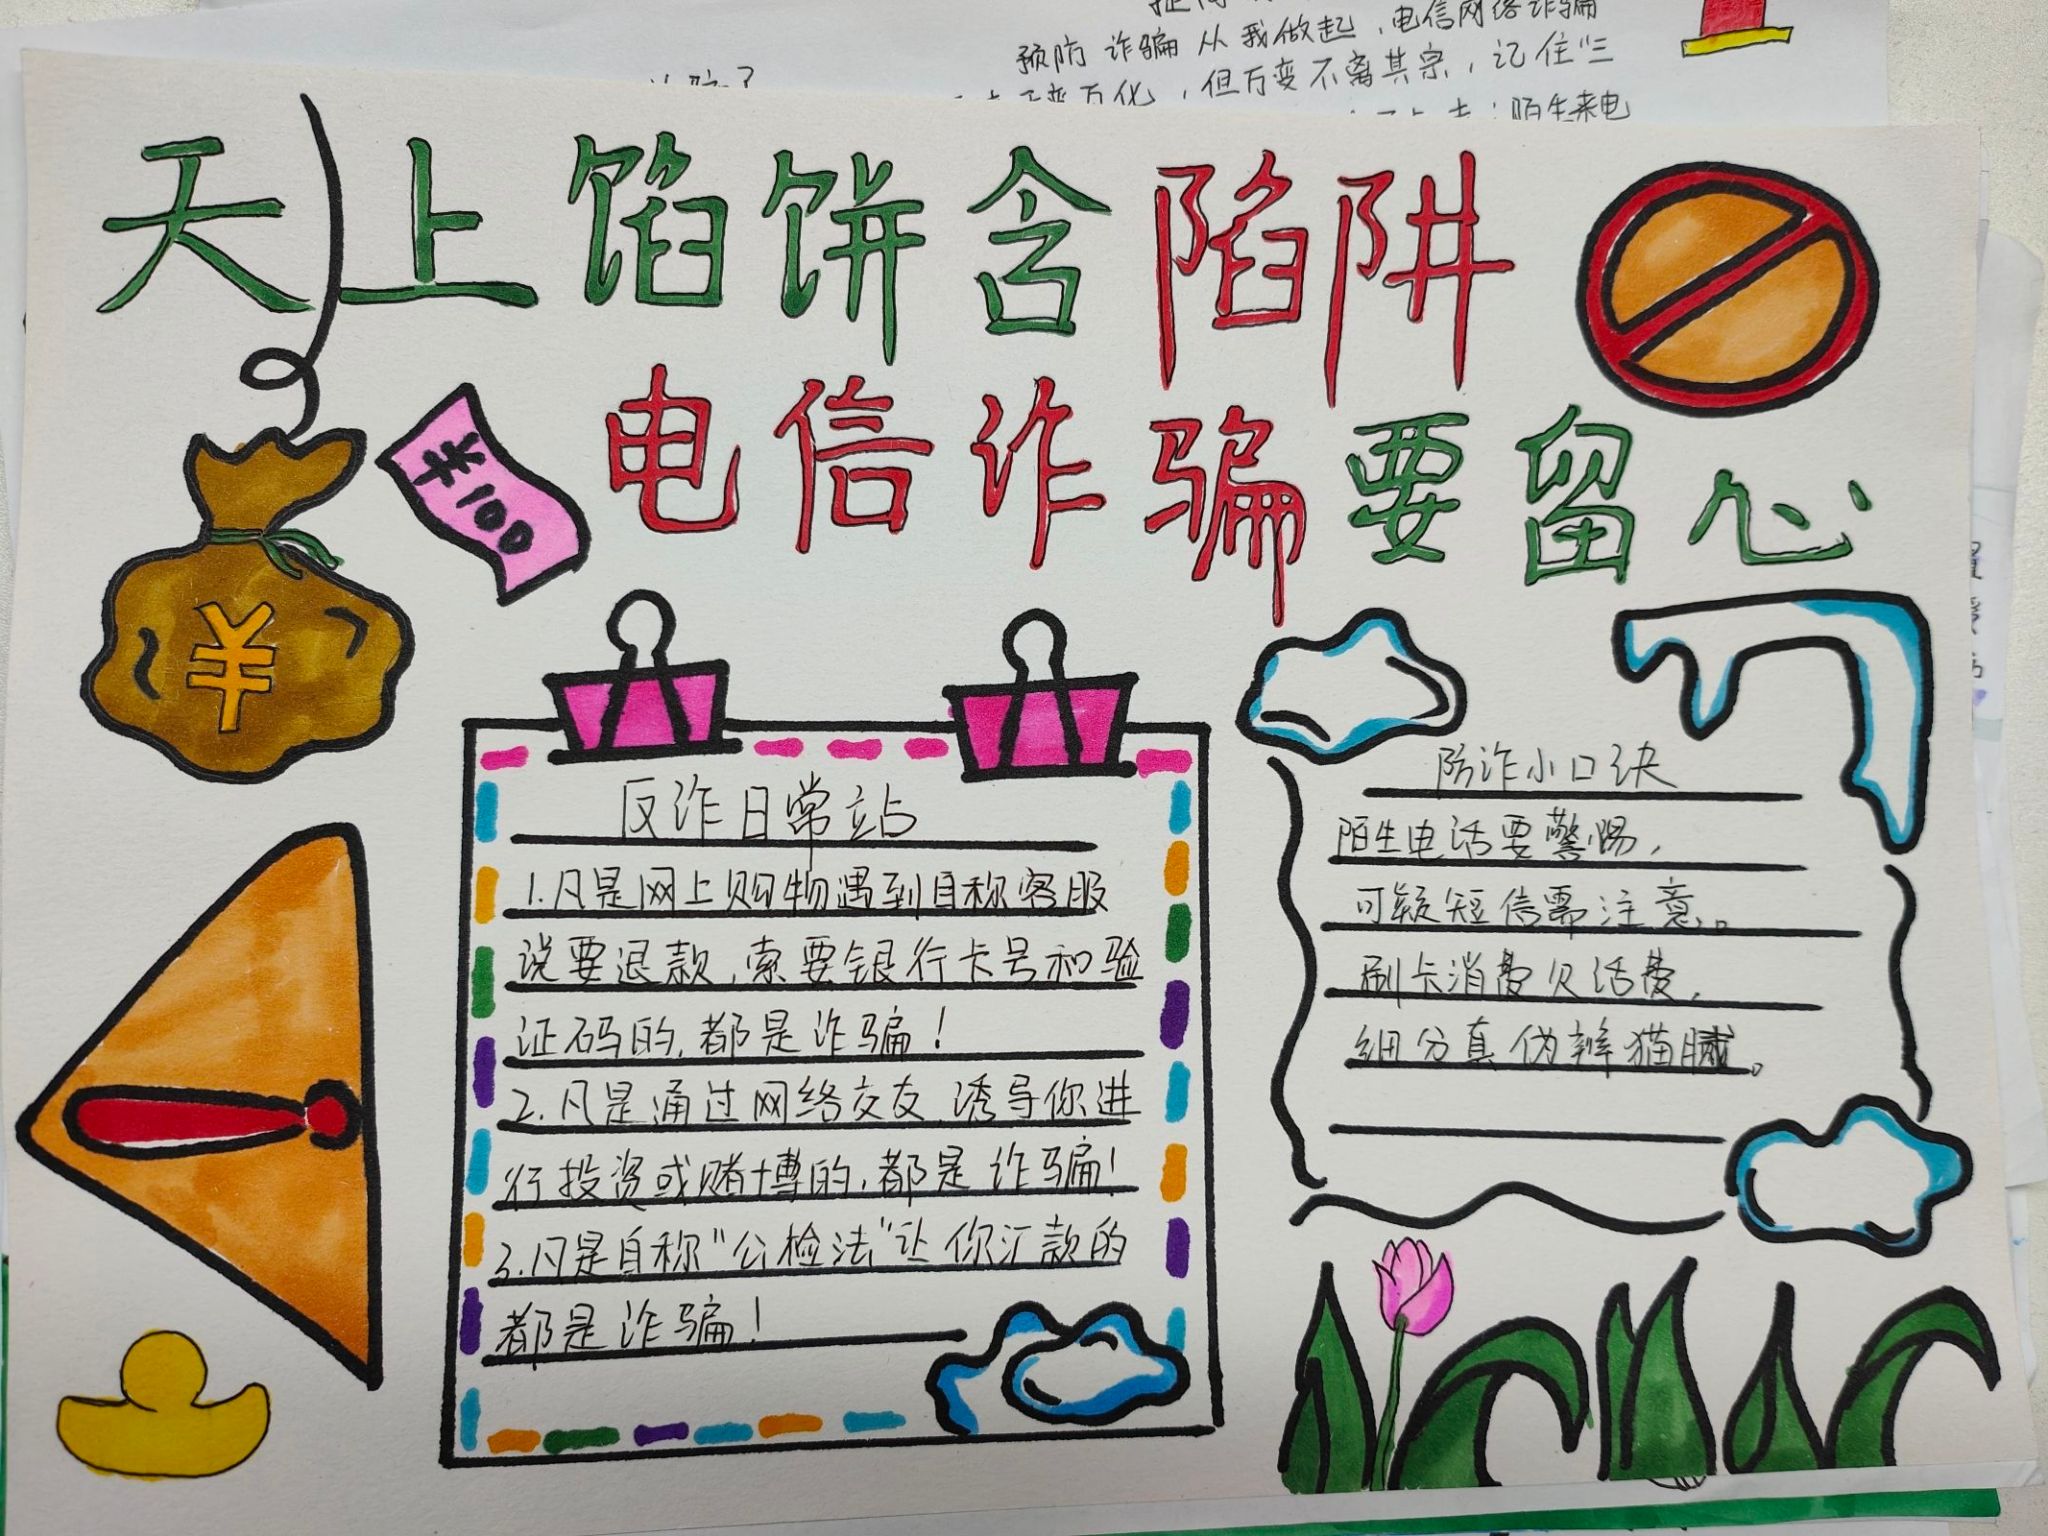 预防诈骗从我做起,电信网络诈骗
变万化,但万变不离其宗,记住"三
陌生来电
天上馅饼含陷阱
电信诈骗要留心
¥100
¥
反诈日常站
1.凡是网上购物遇到自称客服
说要退款,索要银行卡号和验
证码的,都是诈骗!
2.凡是通过网络交友,诱导你进
行投资或赌博的,都是诈骗!
3.凡是自称"公检法"让你汇款的
都是诈骗!
防诈小口诀
陌生电话要警惕,
可疑短信需注意。
刷卡消费欠话费,
细分真伪辨猫腻。